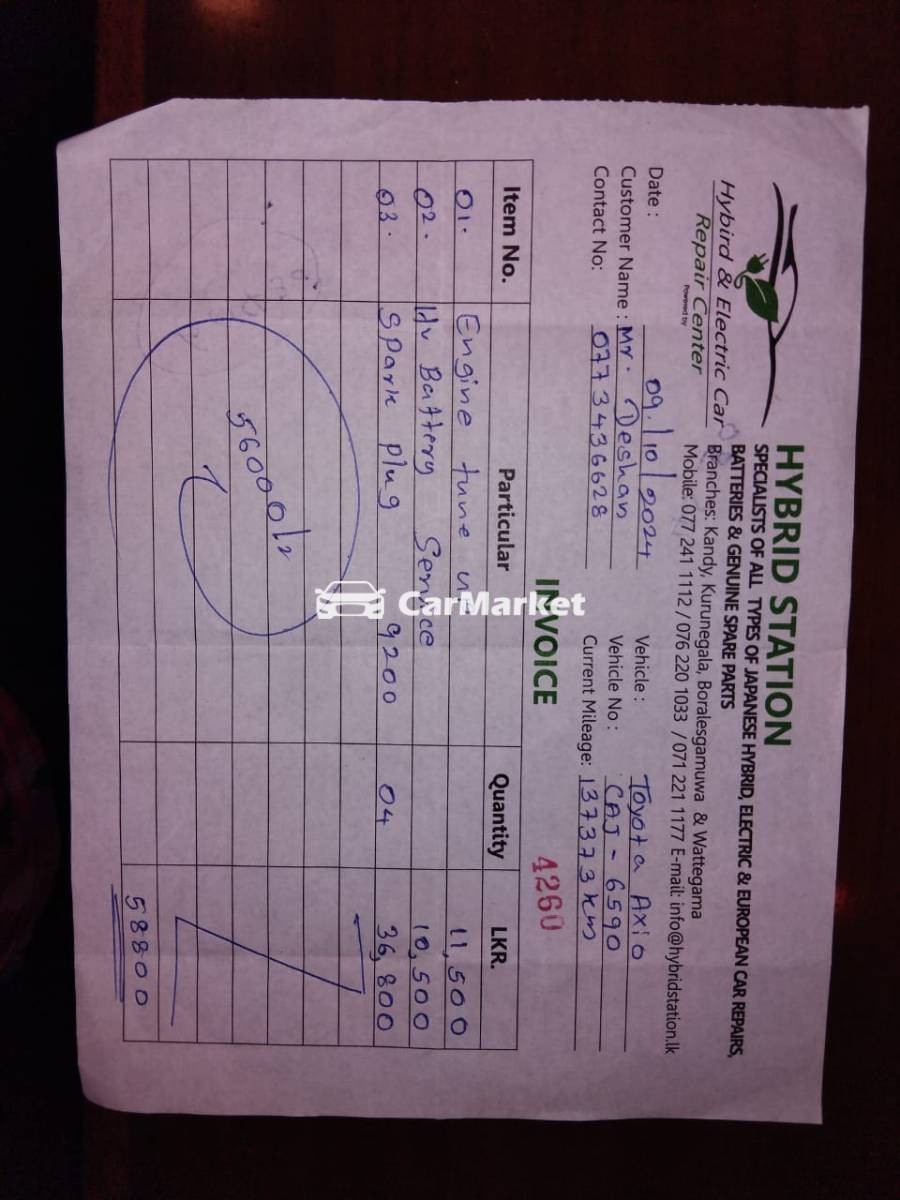 HYBRID STATION
SPECIALISTS OF ALL TYPES OF JAPANESE HYBRID, ELECTRIC & EUROPEAN CAR REPAIRS,
BATTERIES & GENUINE SPARE PARTS
Branches: Kandy, Kurunegala, Boralesgamuwa & Wattegama
Mobile: 077 241 1112 / 076 220 1033 / 071 221 1177 E-mail: info@hybridstation.lk
Hybird & Electric Car
Repair Center
Powered by
Date : 09/10/2024
Vehicle : Toyota Axio
Customer Name : Mr. Deshan
Vehicle No : CAJ - 6590
Contact No: 077 343 6628
Current Mileage: 137373 km
INVOICE
4260
Item No. Particular Quantity LKR.
01. Engine tune up 11,500
02. Hv Battery Service 10,500
03. Spark plug 9200 04 36,800
56000/=
58800
CarMarket